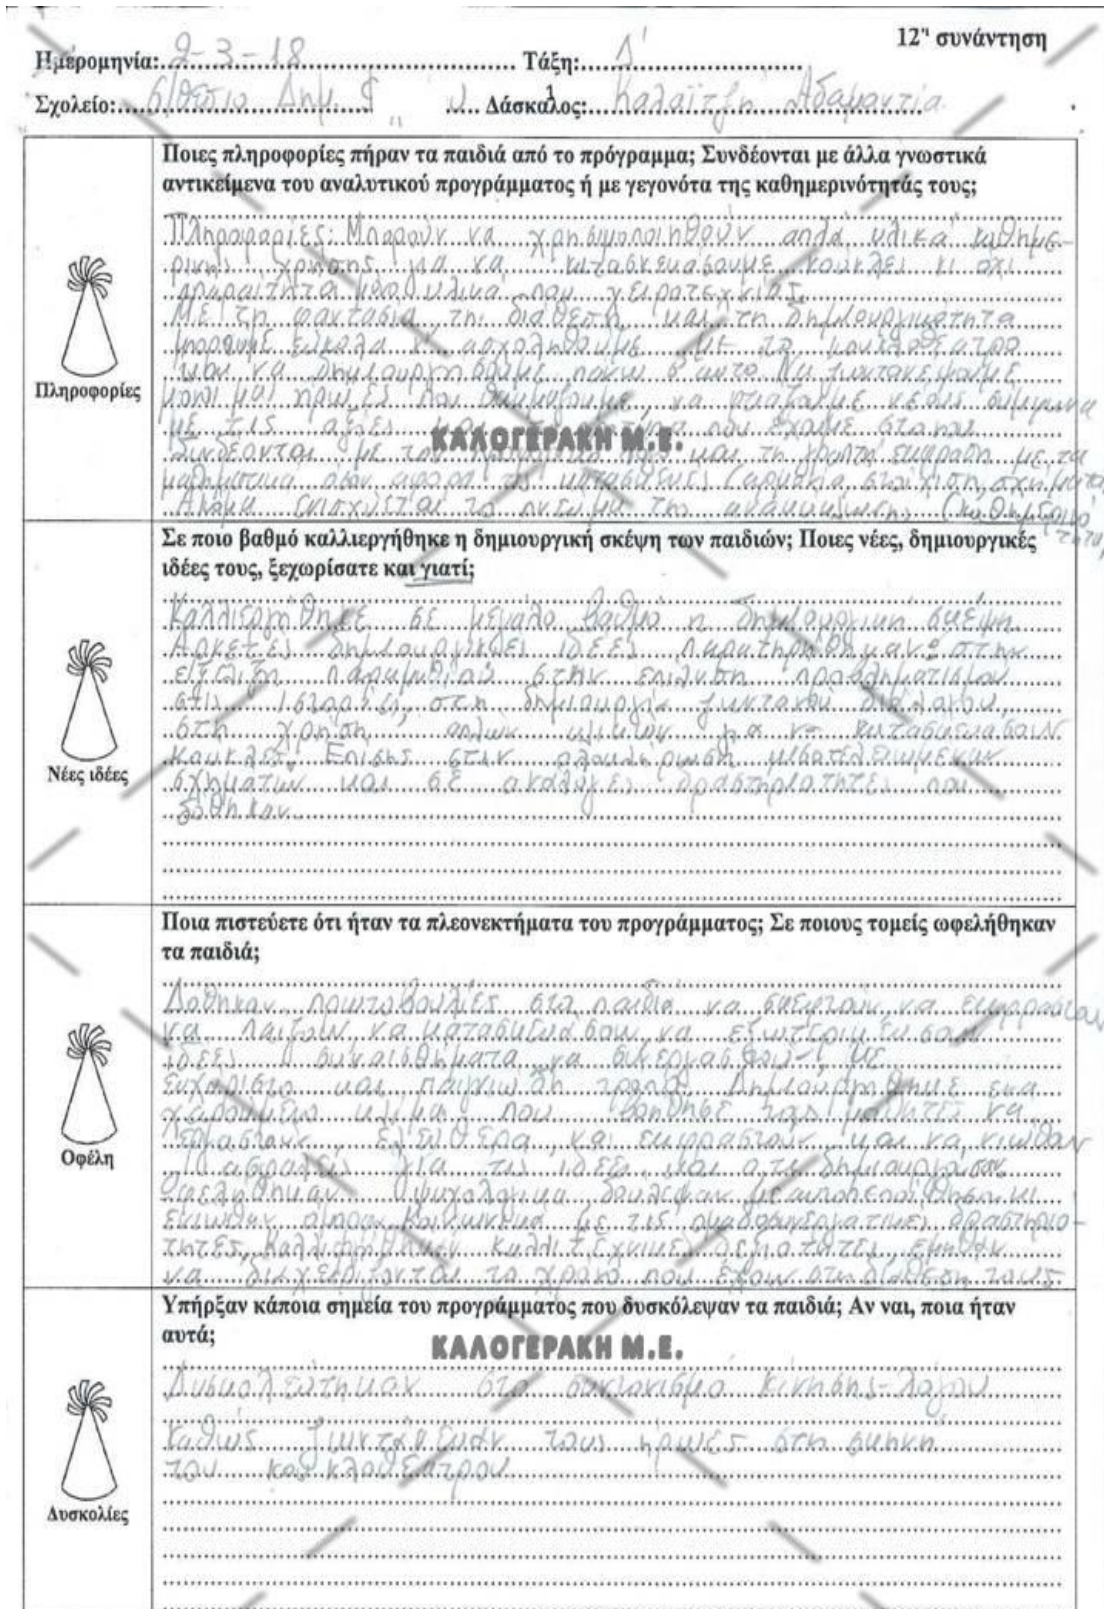 12η συνάντηση
Ημερομηνία: 2-3-18 Τάξη: Δ'
Σχολείο: 6/θέσιο Δημ. Δάσκαλος: Καλαϊτζή Αδαμαντία
1
Ποιες πληροφορίες πήραν τα παιδιά από το πρόγραμμα; Συνδέονται με άλλα γνωστικά
αντικείμενα του αναλυτικού προγράμματος ή με γεγονότα της καθημερινότητάς τους;
Πληροφορίες: Μπορούν να χρησιμοποιηθούν απλά υλικά καθημε-
ρινής χρήσης για να κατασκευάσουμε κούκλες κι όχι
απαραίτητα
Με τη φαντασία, τη διάθεση και τη δημιουργικότητα
μπορούμε εύκολα ν' ασχοληθούμε με το κουκλοθέατρο
και να δημιουργήσουμε πάνω σ' αυτό. Να ζωντανέψουμε
ήρωες που θαυμάζουμε, να φτιάξουμε νέους σύμφωνα
με τις αξίες και τα που έχουμε
ΚΑΛΟΓΕΡΑΚΗ Μ.Ε.
Συνδέονται με και τη γραπτή έκφραση, με τα
μαθηματικά όσον αφορά τις κατασκευές σχήματα
Ακόμα ενισχύεται το πνεύμα της ανακύκλωσης (καθημερινό
τητα)
Πληροφορίες
Σε ποιο βαθμό καλλιεργήθηκε η δημιουργική σκέψη των παιδιών; Ποιες νέες, δημιουργικές
ιδέες τους, ξεχωρίσατε και γιατί;
Καλλιεργήθηκε σε μεγάλο βαθμό η δημιουργική σκέψη
Αρκετές δημιουργικές ιδέες παρατηρήθηκαν στην
εξέλιξη παραμυθιού στην επίλυση προβληματισμού
στις ιστορίες, στη δημιουργία ζωντανού διαλόγου,
στη χρήση απλών υλικών για να κατασκευάσουν
κούκλες. Επίσης στην ολοκλήρωση μισοτελειωμένων
σχημάτων και σε ανάλογες δραστηριότητες που
δόθηκαν
Νέες ιδέες
Ποια πιστεύετε ότι ήταν τα πλεονεκτήματα του προγράμματος; Σε ποιους τομείς ωφελήθηκαν
τα παιδιά;
Δόθηκαν πρωτοβουλίες στα παιδιά να σκεφτούν, να εκφραστούν
να παίξουν, να κατασκευάσουν, να εξωτερικεύσουν
ιδέες, συναισθήματα, να συνεργαστούν με
ευχάριστο και παιγνιώδη τρόπο. Δημιουργήθηκε ένα
χαρούμενο κλίμα που βοήθησε τους μαθητές να
εργαστούν ελεύθερα και εκφραστούν και να νιώθουν
ασφαλείς για τις ιδέες και δημιουργίες
Ωφελήθηκαν ψυχολογικά δούλεψαν με αυτοπεποίθηση κι
ένιωθαν κοινωνικά με τις ομαδοσυνεργατικές δραστηριο-
τητες, καλλιεργήθηκαν καλλιτεχνικές δεξιότητες, έμαθαν
να διαχειρίζονται το χρόνο που έχουν στη διάθεσή τους
Οφέλη
Υπήρξαν κάποια σημεία του προγράμματος που δυσκόλεψαν τα παιδιά; Αν ναι, ποια ήταν
αυτά;
ΚΑΛΟΓΕΡΑΚΗ Μ.Ε.
Δυσκολεύτηκαν στο συντονισμό κίνησης-λόγου
καθώς ζωντάνευαν τους ήρωες στη σκηνή
του κουκλοθέατρου
Δυσκολίες